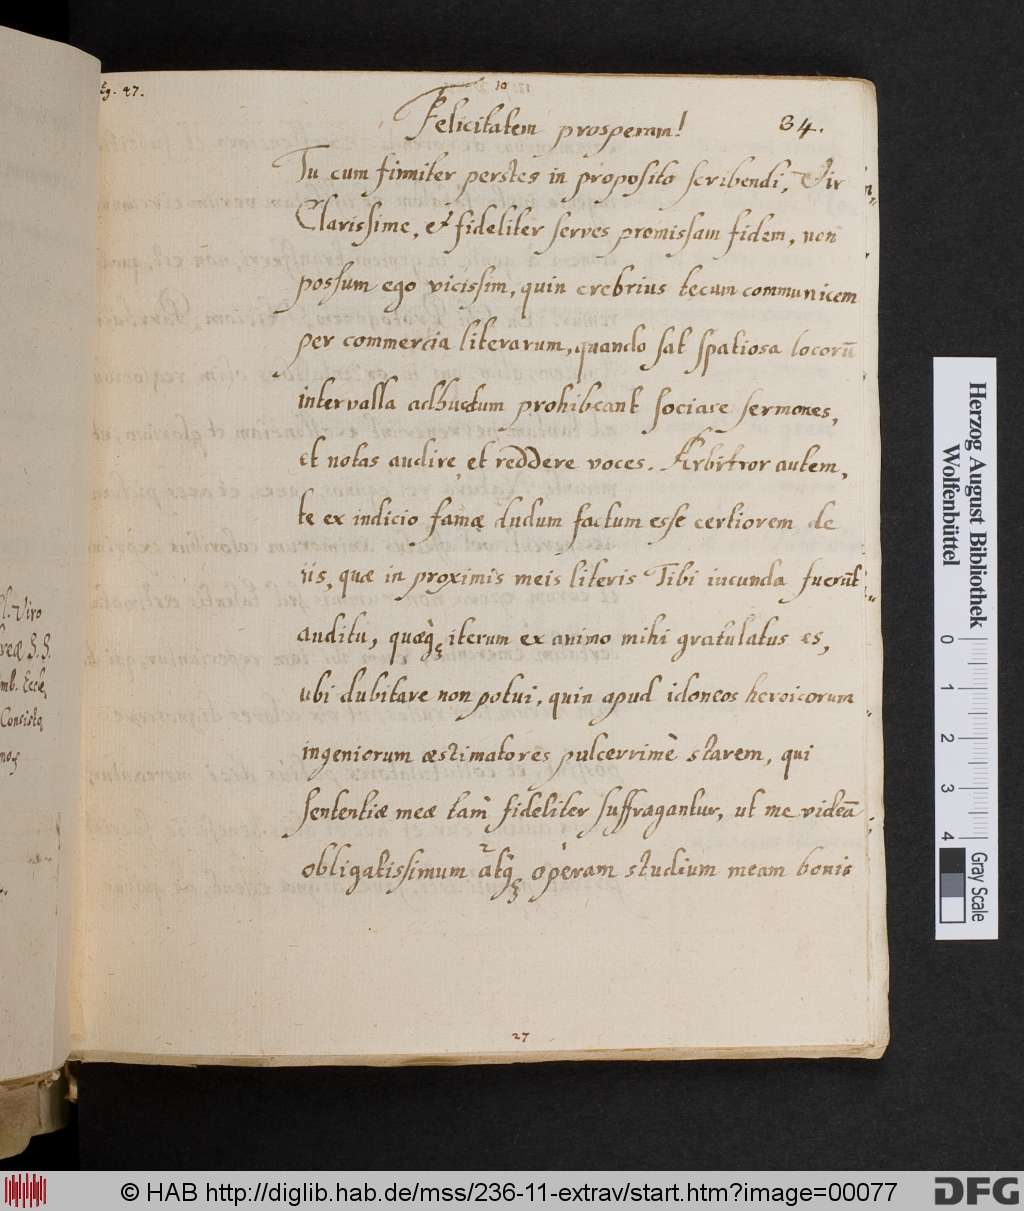 Eg. 47.
10
Felicitatem prosperam!
34.
Tu cum firmiter perstes in proposito scribendi, Vir
Clarissime, et fideliter serves promissam fidem, non
possum ego vicissim, quin crebrius tecum communicem
per commercia literarum, quando sat spatiosa locorū
intervalla adhuctum prohibeant sociare sermones,
et notas audire, et reddere voces. Arbitror autem,
te ex indicio famæ dudum factum esse certiorem de
iis, quæ in proximis meis literis Tibi iucunda fuerūt
auditu, quæq̀ iterum ex animo mihi gratulatus es,
ubi dubitare non potui, quin apud idoneos heroicorum
ingeniorum æstimatores pulcerrimè starem, qui
sententiæ meæ tam fideliter suffragantur, ut me videā
obligatissimum atq̀ operam studium meam bonis
27
Cl. Viro
S. S.
Eccle,
Consisto,
Herzog August Bibliothek
Wolfenbüttel
0 1 2 3 4
Gray Scale
© HAB http://diglib.hab.de/mss/236-11-extrav/start.htm?image=00077
DFG